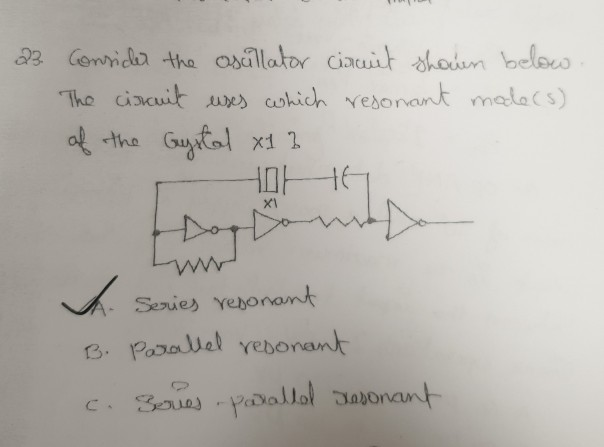 23. Consider the oscillator circuit shown below.
The circuit uses which resonant mode(s)
of the Crystal X1 ?
X1
A. Series resonant
B. Parallel resonant
C. Series - parallel resonant